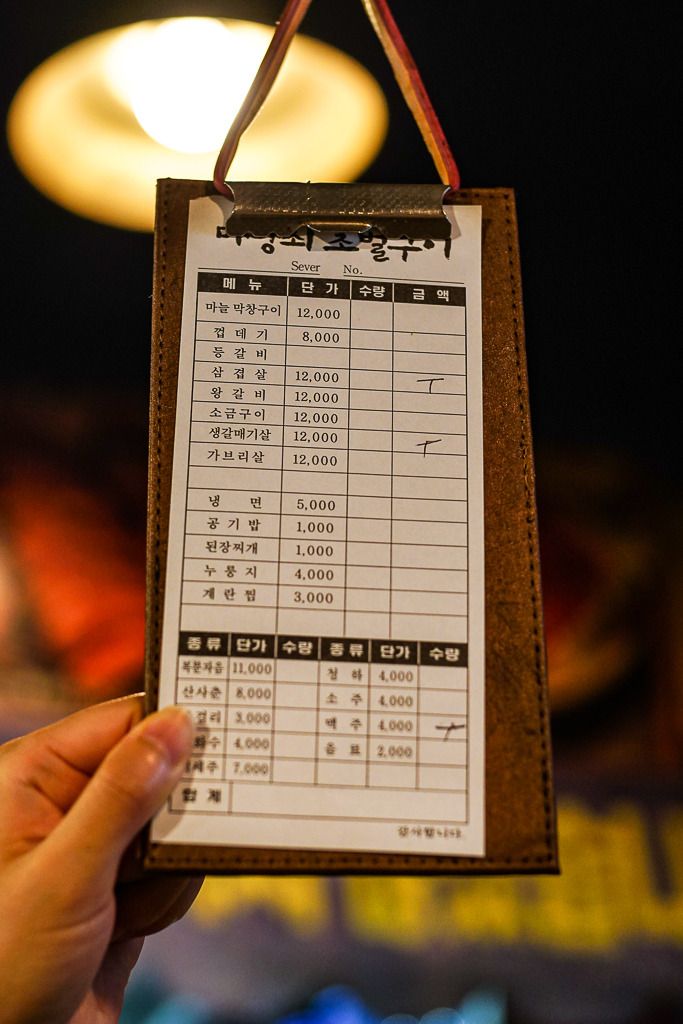 초벌구이
Sever No.
메 뉴 단 가 수량 금 액
마늘 막창구이 12,000
껍 데 기 8,000
등 갈 비
삼 겹 살 12,000
왕 갈 비 12,000
소금구이 12,000
생갈매기살 12,000
가브리살 12,000
냉 면 5,000
공 기 밥 1,000
된장찌개 1,000
누 룽 지 4,000
계 란 찜 3,000
종 류 단가 수량 종 류 단가 수량
복분자음 11,000 청 하 4,000
산사춘 8,000 소 주 4,000
걸리 3,000 맥 주 4,000
화수 4,000 음 료 2,000
세주 7,000
합 계
감사합니다.